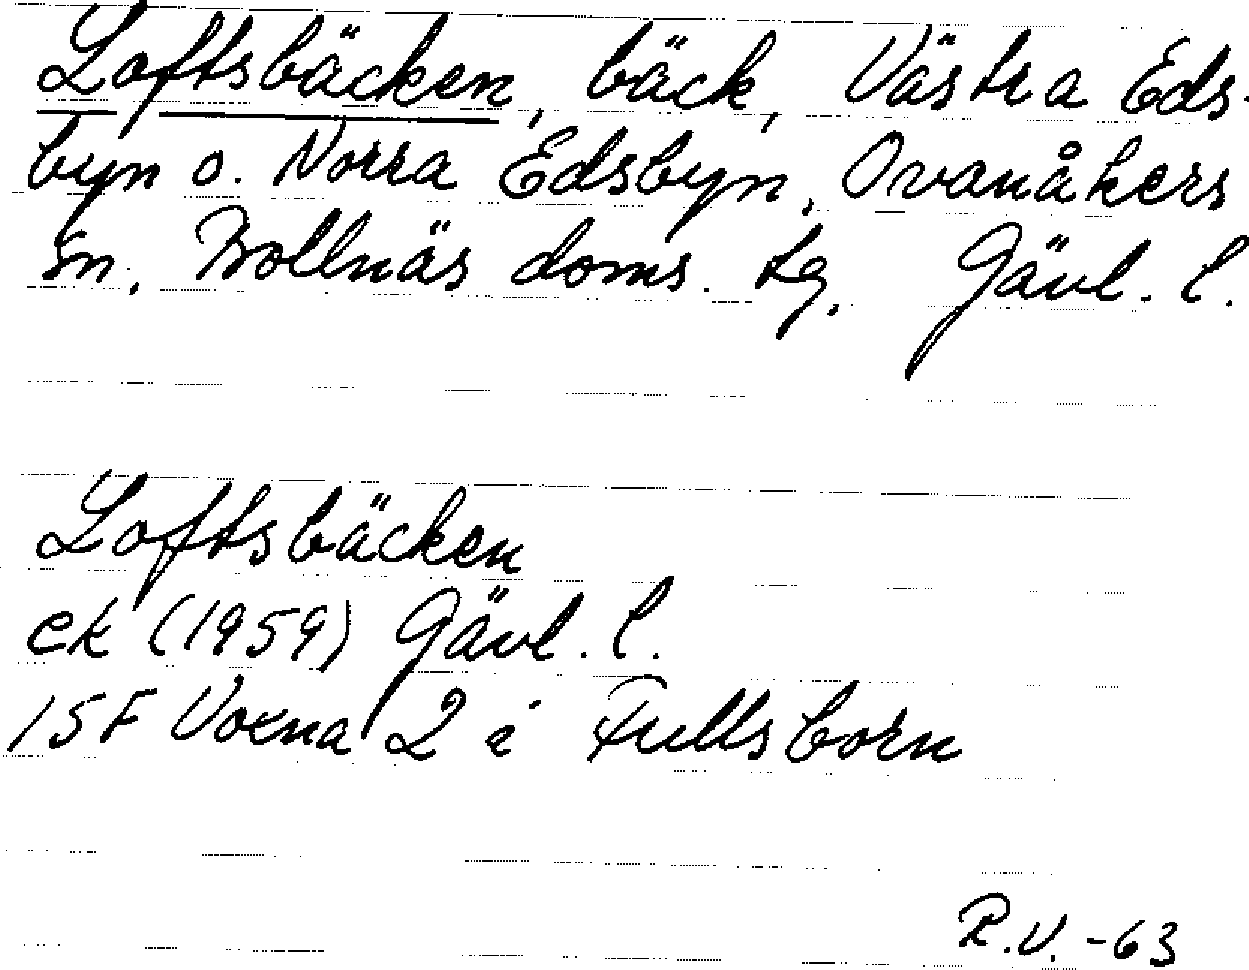 Loftsbäcken, bäck, Västra Eds-
byn o. Norra Edsbyn, Ovanåkers
sn, Bollnäs doms. tg, Gävl. l.
Loftsbäcken
ek (1959) Gävl. l.
15F Voxna 2 i Fullsborn
R.V. -63